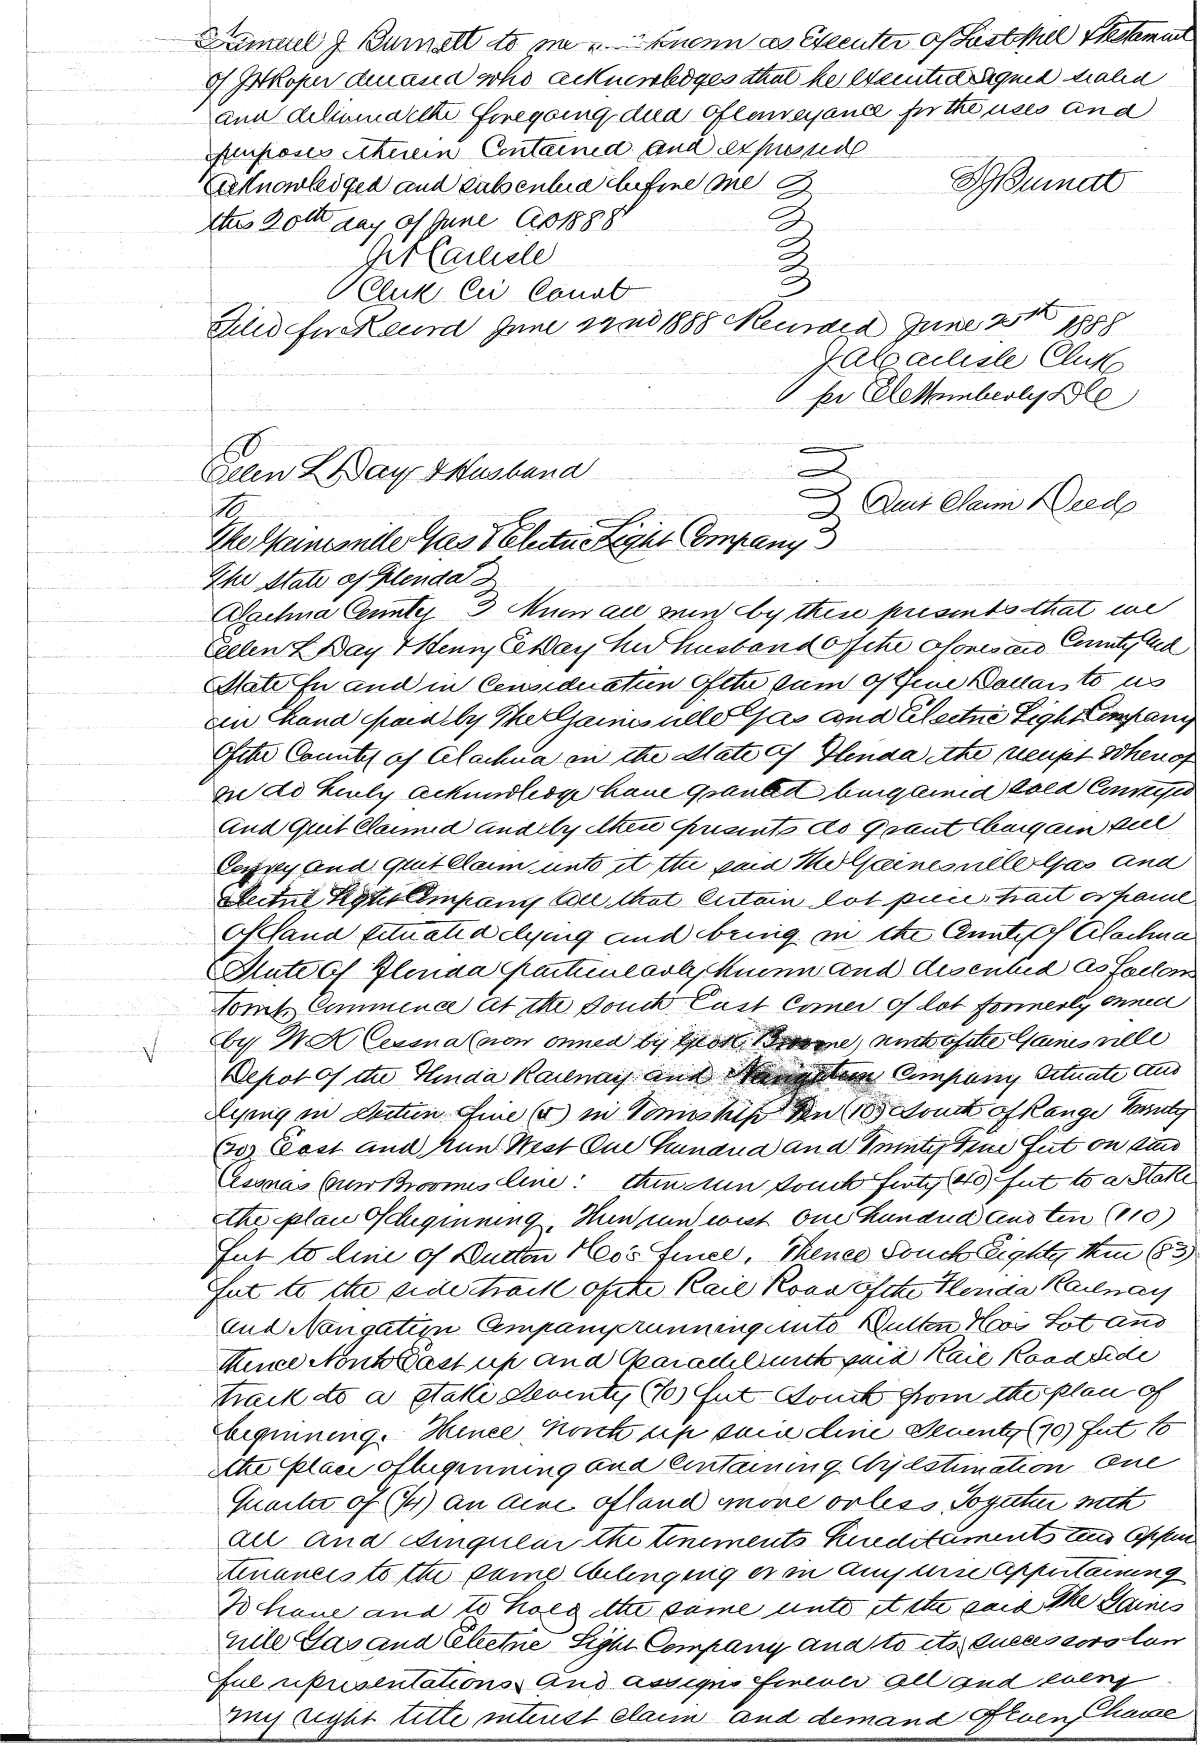 Samuel J Burnett to me known as Executor of Last Will & Testament
of deceased who acknowledges that he executed signed sealed
and delivered the foregoing deed of conveyance for the uses and
purposes therein Contained and expressed
Acknowledged and subscribed before me SJ Burnett
this 20th day of June AD 1888
JA Carlisle
Clerk Cir Court
Filed for Record June 22nd 1888 Recorded June 25th 1888
JA Carlisle Clerk
per DC
Ellen L Day & Husband
To Quit Claim Deed
The Gainesville Gas & Electric Light Company
The State of Florida
Alachua County Know all men by these presents that we
Ellen L Day & Henry E Day her husband of the aforesaid County and
State for and in consideration of the sum of Five Dollars to us
in hand paid by The Gainesville Gas and Electric Light Company
of the County of Alachua in the State of Florida the receipt whereof
we do hereby acknowledge have granted bargained sold Conveyed
and quit Claimed and by these presents do grant bargain sell
Convey and quit Claim unto it the said The Gainesville Gas and
Electric Light Company all that certain lot piece tract or parcel
of land situated lying and being in the County of Alachua
State of Florida particularly known and described as follows
towit, Commence at the South East Corner of lot formerly owned
by W K Cessna (now owned by Broome) north of the Gainesville
Depot of the Florida Railway and Navigation Company situate and
lying in Section five (5) in Township Ten (10) South of Range Twenty
(20) East and run West One hundred and Twenty Five feet on said
Cessnas (now Broomes line: then run South forty (40) feet to a Stake
the place of beginning. Then run west one hundred and ten (110)
feet to line of Dutton & Co's fence. Thence South Eighty three (83)
feet to the side track of the Rail Road of the Florida Railway
and Navigation Company running into Dutton & Co's Lot and
thence North East up and Paralell with said Rail Road side
track to a stake Seventy (70) feet South from the place of
beginning. Thence North up said line Seventy (70) feet to
the place of beginning and containing by estimation one
quarter of (1/4) an acre of land more or less. Together with
all and singular the tenements hereditaments and appur
tenances to the same belonging or in any wise appertaining
To have and to hold the same unto it the said The Gaines
ville Gas and Electric Light Company and to its successors law
ful representations and assigns forever all and every
my right title interest claim and demand of every Charac